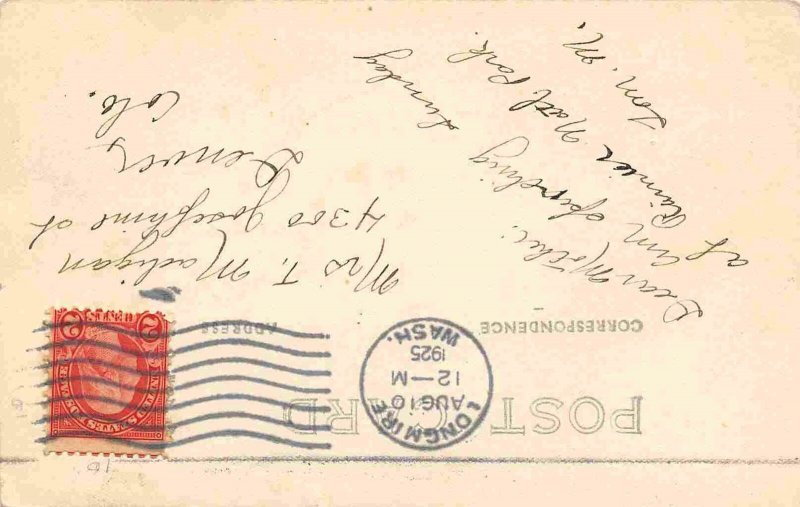 POST CARD
CORRESPONDENCE
ADDRESS
LONGMIRE
AUG 10
12—M
1925
WASH.
2 2
Dear Mother:
Am spending Sunday
at Rainier Natl Park.
Tom. M.
Mrs T. Madigan
4300 Josephine st
Denver,
Colo.